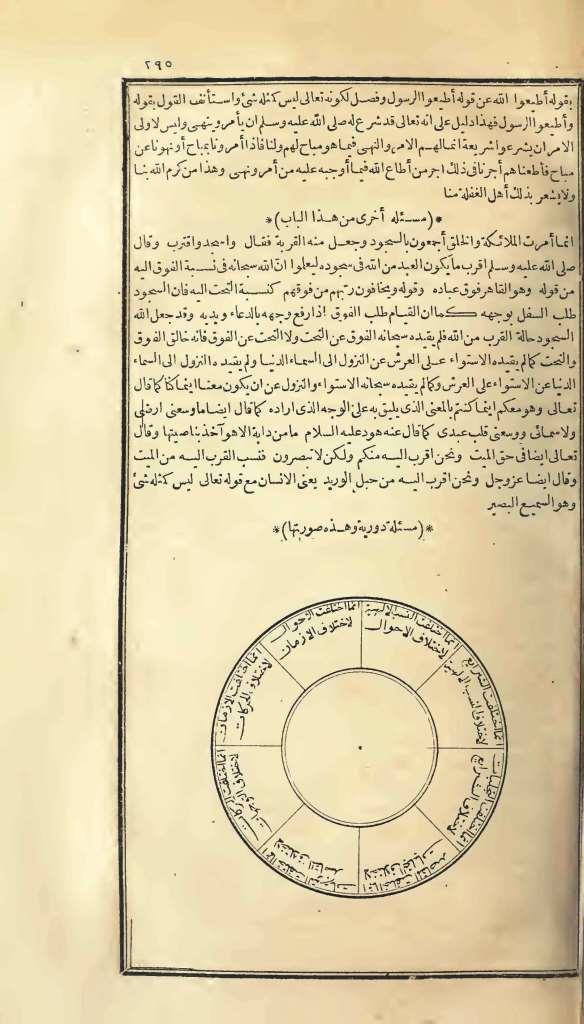 ٢٩٥
بقوله أطيعوا الله عن قوله أطيعوا الرسول وفصل لكونه تعالى ليس كمثله شئ واستأنف القول بقوله
وأطيعوا الرسول فهذا دليل على انه تعالى قد شرع له صلى الله عليه وسلم ان يأمر وينهى وليس لاولى
الامر ان يشرعوا شريعة انما لهم الامر والنهى فيما هو مباح لهم ولنا فاذا أمرونا بمباح أو نهونا عن
مباح فأطعناهم أجرنا فى ذلك اجر من أطاع الله فيما أوجبه عليه من أمر ونهى وهذا من كرم الله بنا
ولا يشعر بذلك أهل الغفلة منا
*(مسئلة أخرى من هذا الباب)*
انما أمرت الملائكة والخلق أجمعون بالسجود وجعل منه القربة فقال واسجد واقترب وقال
صلى الله عليه وسلم اقرب ما يكون العبد من الله فى سجوده ليعلموا انّ الله سبحانه فى نسبة الفوق اليه
من قوله وهو القاهر فوق عباده وقوله ويخافون ربهم من فوقهم كنسبة التحت اليه فان السجود
طلب السفل بوجهه كما ان القيام طلب الفوق اذا رفع وجهه بالدعاء ويديه وقد جعل الله
السجود حالة القرب من الله فلم يقيده سبحانه الفوق عن التحت ولا التحت عن الفوق فانه خالق الفوق
والتحت كما لم يقيده الاستواء على العرش عن النزول الى السماء الدنيا ولم يقيده النزول الى السماء
الدنيا عن الاستواء على العرش وكما لم يقيده سبحانه الاستواء والنزول عن ان يكون معنا اينما كنا كما قال
تعالى وهو معكم اينما كنتم بالمعنى الذى يليق به على الوجه الذى اراده كما قال ايضا ما وسعنى ارضى
ولا سمائى ووسعنى قلب عبدى كما قال عنه هود عليه السلام ما من دابة الا هو آخذ بناصيتها وقال
تعالى ايضا فى حق الميت ونحن اقرب اليه منكم ولكن لا تبصرون فنسب القرب اليه من الميت
وقال ايضا عز وجل ونحن اقرب اليه من حبل الوريد يعنى الانسان مع قوله تعالى ليس كمثله شئ
وهو السميع البصير
*(مسئلة دورية وهذه صورتها)*
انما اختلفت النسب الالهية
لاختلاف الاحوال
انما اختلفت الاحوال
لاختلاف الازمان
انما اختلفت الازمان
لاختلاف الحركات
انما اختلفت الحركات
لاختلاف التوجهات
انما اختلفت التوجهات
لاختلاف المقاصد
انما اختلفت المقاصد
لاختلاف التجليات
انما اختلفت التجليات
لاختلاف الشرائع
انما اختلفت الشرائع
لاختلاف النسب الالهية